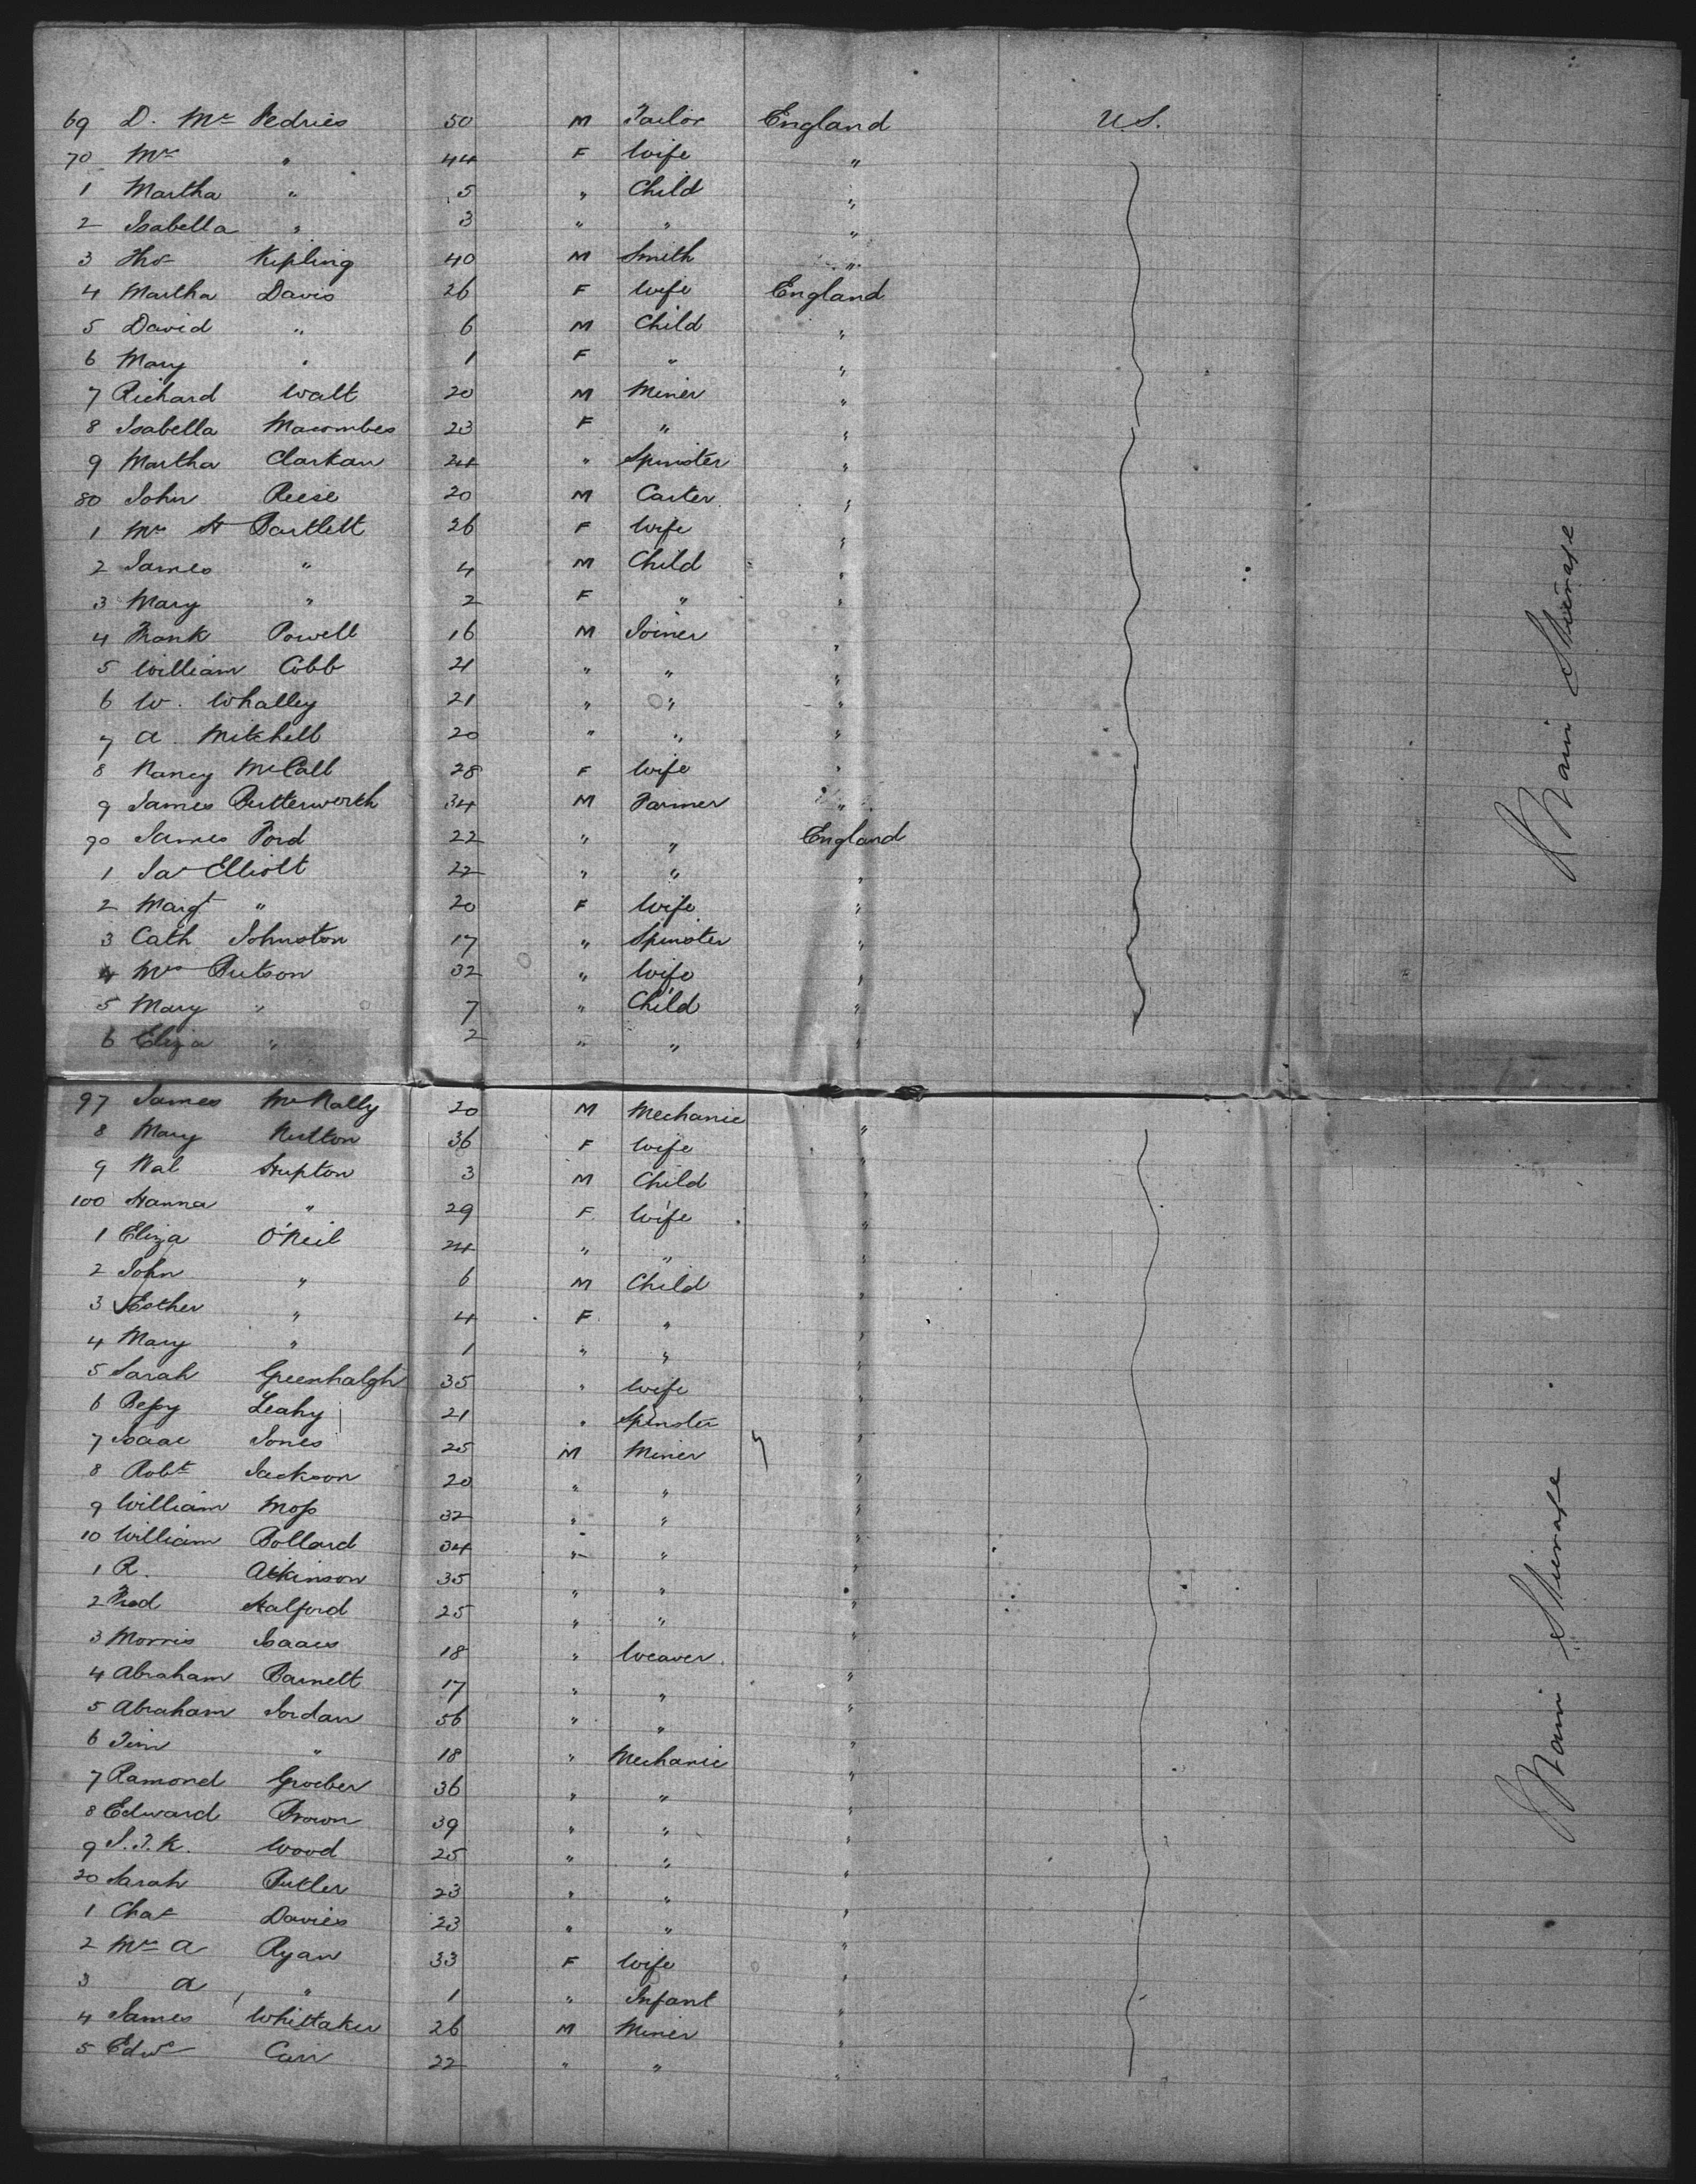 69 D. Mc Pedries 50 M Tailor England U.S.
70 Mrs " 44 F Wife "
1 Martha " 5 " Child "
2 Isabella " 3 " " "
3 Thos Kipling 40 M Smith "
4 Martha Davis 26 F Wife England
5 David " 6 M Child "
6 Mary " 1 F " "
7 Richard Walt 20 M Miner "
8 Isabella Macombes 23 F " "
9 Martha Clarkan 24 " Spinster "
80 John Reese 20 M Carter "
1 Mrs H Bartlett 26 F Wife "
2 James " 4 M Child "
3 Mary " 2 F " "
4 Frank Powell 16 M Joiner "
5 William Cobb 21 " " "
6 W. Whalley 21 " " "
7 A. Mitchell 20 " " "
8 Nancy McCall 28 F Wife "
9 James Butterworth 34 M Farmer "
90 James Ford 22 " " England
1 Jas Elliott 22 " " "
2 Margt " 20 F Wife "
3 Cath Johnston 17 " Spinster "
4 Mrs Butson 32 " Wife "
5 Mary " 7 " Child "
6 Eliza " 2 " " "
97 James McNally 20 M Mechanic "
8 Mary Nutton 36 F Wife "
9 Wal Hupton 3 M Child "
100 Hanna " 29 F Wife "
1 Eliza O'Neil 24 " " "
2 John " 6 M Child "
3 Esther " 4 F " "
4 Mary " 1 " " "
5 Sarah Greenhalgh 35 " Wife "
6 Bessy Leahy 21 " Spinster "
7 Isaac Jones 25 M Miner "
8 Robt Jackson 20 " " "
9 William Moss 32 " " "
10 William Bollard 34 " " "
1 R. Atkinson 35 " " "
2 Fred Halford 25 " " "
3 Morris Isaacs 18 " Weaver "
4 Abraham Barnett 17 " " "
5 Abraham Jordan 56 " " "
6 Tim " 18 " Mechanic "
7 Ramond Groeber 36 " " "
8 Edward Brown 39 " " "
9 J.T.K. Wood 25 " " "
20 Sarah Butler 23 " " "
1 Chas Davies 23 " " "
2 Mrs A Ryan 33 F Wife "
3 A " 1 " Infant "
4 James Whittaker 26 M Miner "
5 Edwd Carr 22 " " "
Main Steerage
Main Steerage